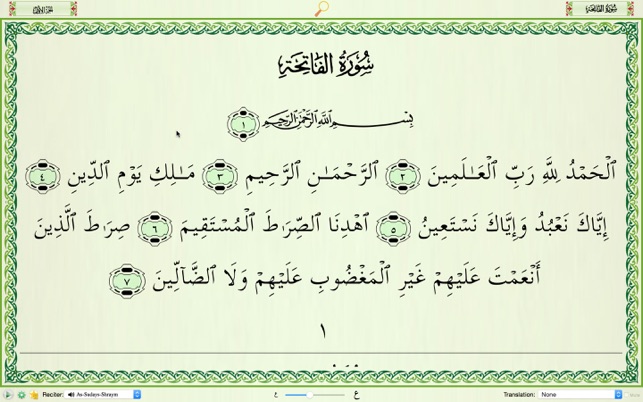 سُورَةُ الفَاتِحَةِ
سُورَةُ الفَاتِحَةِ
بِسْمِ ٱللَّهِ ٱلرَّحْمَٰنِ ٱلرَّحِيمِ ١
ٱلْحَمْدُ لِلَّهِ رَبِّ ٱلْعَـٰلَمِينَ ٢ ٱلرَّحْمَـٰنِ ٱلرَّحِيمِ ٣ مَـٰلِكِ يَوْمِ ٱلدِّينِ ٤
إِيَّاكَ نَعْبُدُ وَإِيَّاكَ نَسْتَعِينُ ٥ ٱهْدِنَا ٱلصِّرَٰطَ ٱلْمُسْتَقِيمَ ٦ صِرَٰطَ ٱلَّذِينَ
أَنْعَمْتَ عَلَيْهِمْ غَيْرِ ٱلْمَغْضُوبِ عَلَيْهِمْ وَلَا ٱلضَّآلِّينَ ٧
١
Reciter: As-Sudays-Shraym ع ع Translation: None